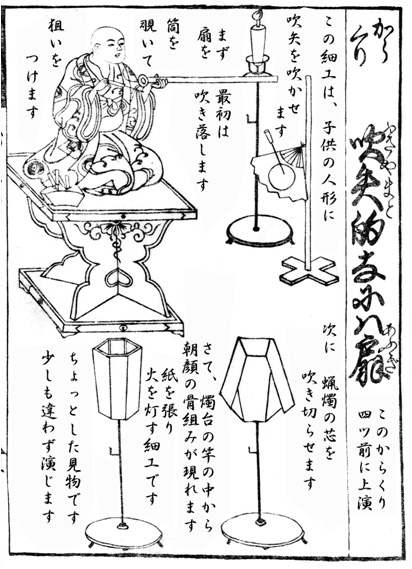 からくり
吹矢的
扇
ふきやまと
あふぎ
このからくり
四ツ前に上演
この細工は、子供の人形に
吹矢を吹かせます
まず 最初は
扇を 吹き落します
筒を
覗いて
狙いを
つけます
次に 蝋燭の芯を
吹き切らせます
さて、燭台の竿の中から
朝顔の骨組みが現れます
紙を張り
火を灯す細工です
ちょっとした見物です
少しも違わず演じます